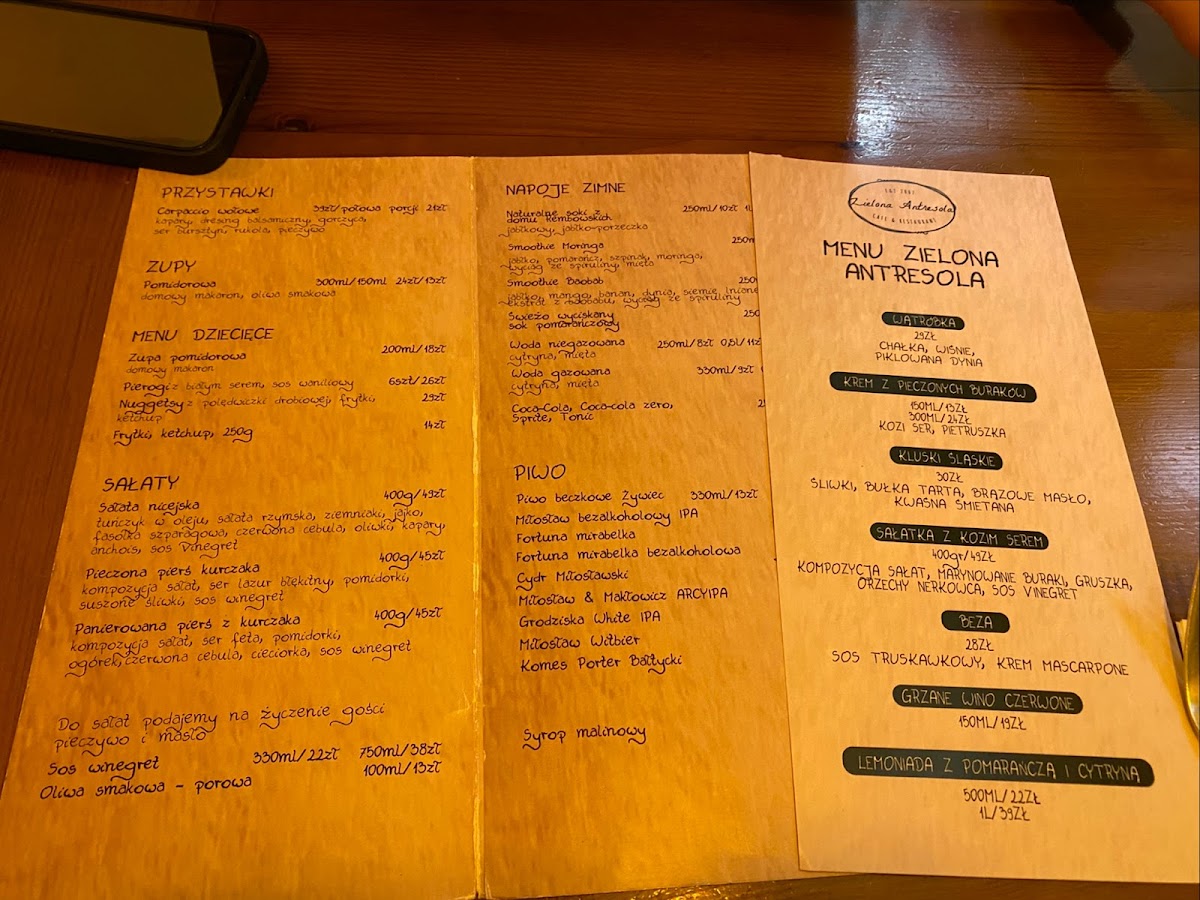 PRZYSTAWKI
Carpaccio wołowe 39zł/połowa porcji 21zł
kapary, dresing balsamiczny, gorczyca,
ser bursztyn, rukola, pieczywo
ZUPY
Pomidorowa 300ml/150ml 24zł/13zł
domowy makaron, oliwa smakowa
MENU DZIECIĘCE
Zupa pomidorowa 200ml/18zł
domowy makaron
Pierogi z białym serem, sos waniliowy 6szt/26zł
Nuggetsy z polędwiczki drobiowej, frytki, 29zł
ketchup
Frytki, ketchup, 250g 14zł
SAŁATY
Sałata nicejska 400g/49zł
tuńczyk w oleju, sałata rzymska, ziemniaki, jajko,
fasolka szparagowa, czerwona cebula, oliwki, kapary,
anchois, sos vinegret
Pieczona pierś kurczaka 400g/45zł
kompozycja sałat, ser lazur błękitny, pomidorki,
suszone śliwki, sos winegret
Panierowana pierś z kurczaka 400g/45zł
kompozycja sałat, ser feta, pomidorki,
ogórek, czerwona cebula, cieciorka, sos winegret
Do sałat podajemy na życzenie gości
pieczywo i masło
Sos winegret 330ml/22zł 750ml/38zł
Oliwa smakowa - porowa 100ml/13zł
NAPOJE ZIMNE
Naturalne soki z 250ml/10zł 1L
domu Rembowskich
jabłkowy, jabłko-porzeczka
Smoothie Moringa 250m
jabłko, pomarańcz, szpinak, moringa,
wyciąg ze spiruliny, mięta
Smoothie Baobab 250
jabłko, mango, banan, dynia, siemię lniane
ekstrat z baobabu, wyciąg ze spiruliny
Świeżo wyciskany 250
sok pomarańczowy
Woda niegazowana 250ml/8zł 0,5l/11z
cytryna, mięta
Woda gazowana 330ml/9zł
cytryna, mięta
Coca-Cola, Coca-cola zero, 2
Sprite, Tonic
PIWO
Piwo beczkowe Żywiec 330ml/13zł
Miłosław bezalkoholowy IPA
Fortuna mirabelka
Fortuna mirabelka bezalkoholowa
Cydr Miłosławski
Miłosław & Makłowicz ARCYIPA
Grodziska White IPA
Miłosław Witbier
Komes Porter Bałtycki
Syrop malinowy
Zielona Antresola
CAFE & RESTAURANT
MENU ZIELONA
ANTRESOLA
WĄTRÓBKA
29ZŁ
CHAŁKA, WIŚNIE,
PIKLOWANA DYNIA
KREM Z PIECZONYCH BURAKÓW
150ML/13ZŁ
300ML/24ZŁ
KOZI SER, PIETRUSZKA
KLUSKI ŚLĄSKIE
30ZŁ
ŚLIWKI, BUŁKA TARTA, BRĄZOWE MASŁO,
KWAŚNA ŚMIETANA
SAŁATKA Z KOZIM SEREM
400gr/49ZŁ
KOMPOZYCJA SAŁAT, MARYNOWANE BURAKI, GRUSZKA,
ORZECHY NERKOWCA, SOS VINEGRET
BEZA
28ZŁ
SOS TRUSKAWKOWY, KREM MASCARPONE
GRZANE WINO CZERWONE
150ML/19ZŁ
LEMONIADA Z POMARAŃCZĄ I CYTRYNĄ
500ML/22ZŁ
1L/39ZŁ